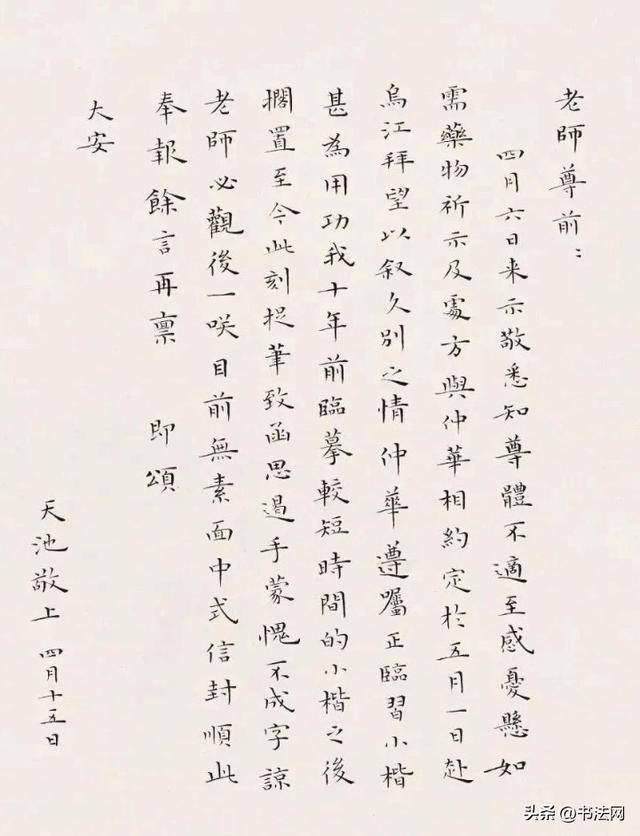 老師尊前：
四月六日来示敬悉知尊體不適至感憂懸如
需藥物祈示及處方與仲華相約定於五月一日赴
烏江拜望以叙久別之情仲華遵囑正臨習小楷
甚為用功我十年前臨摹較短時間的小楷之後
擱置至今此刻捉筆致函思遏手蒙愧不成字諒
老師必觀後一咲目前無素面中式信封順此
奉報餘言再禀 即頌
大安
天池敬上 四月十五日
头条@书法网